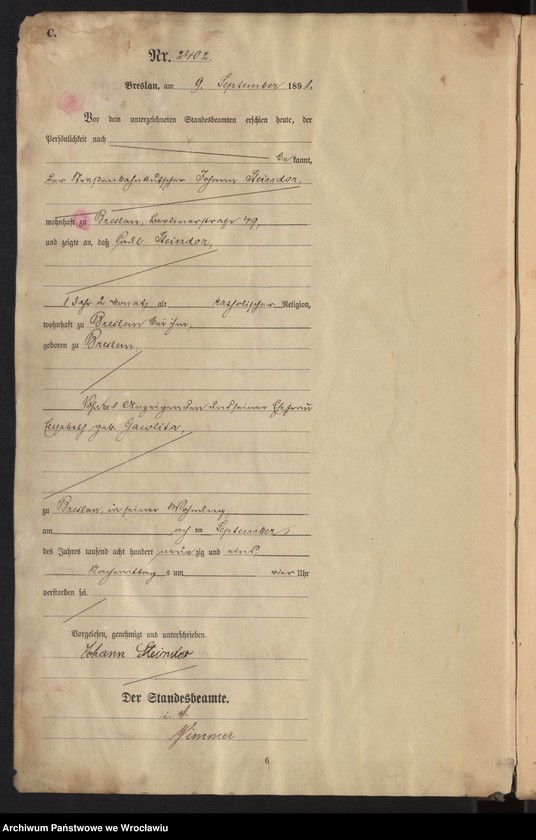 C.
Nr. 2402.
Breslau, am 9. September 1891.
Vor dem unterzeichneten Standesbeamten erschien heute, der
Persönlichkeit nach
be kannt,
der Straßenbahnkutscher Johann Steindor,
wohnhaft zu Breslau, Berlinerstraße 49,
und zeigte an, daß Paul Steindor,
1 Jahr 2 Monate alt katholischer Religion,
wohnhaft zu Breslau bei ihm,
geboren zu Breslau,
Anzeigenden und seiner Ehefrau
Elisabeth geb. Gawlita,
zu Breslau, in seiner Wohnung,
am acht en September
des Jahres tausend acht hundert neun zig und eins,
Nachmittag s um vier Uhr
verstorben sei.
Vorgelesen, genehmigt und unterschrieben.
Johann Steindor
Der Standesbeamte.
i. V.
Wimmer
6
Archiwum Państwowe we Wrocławiu